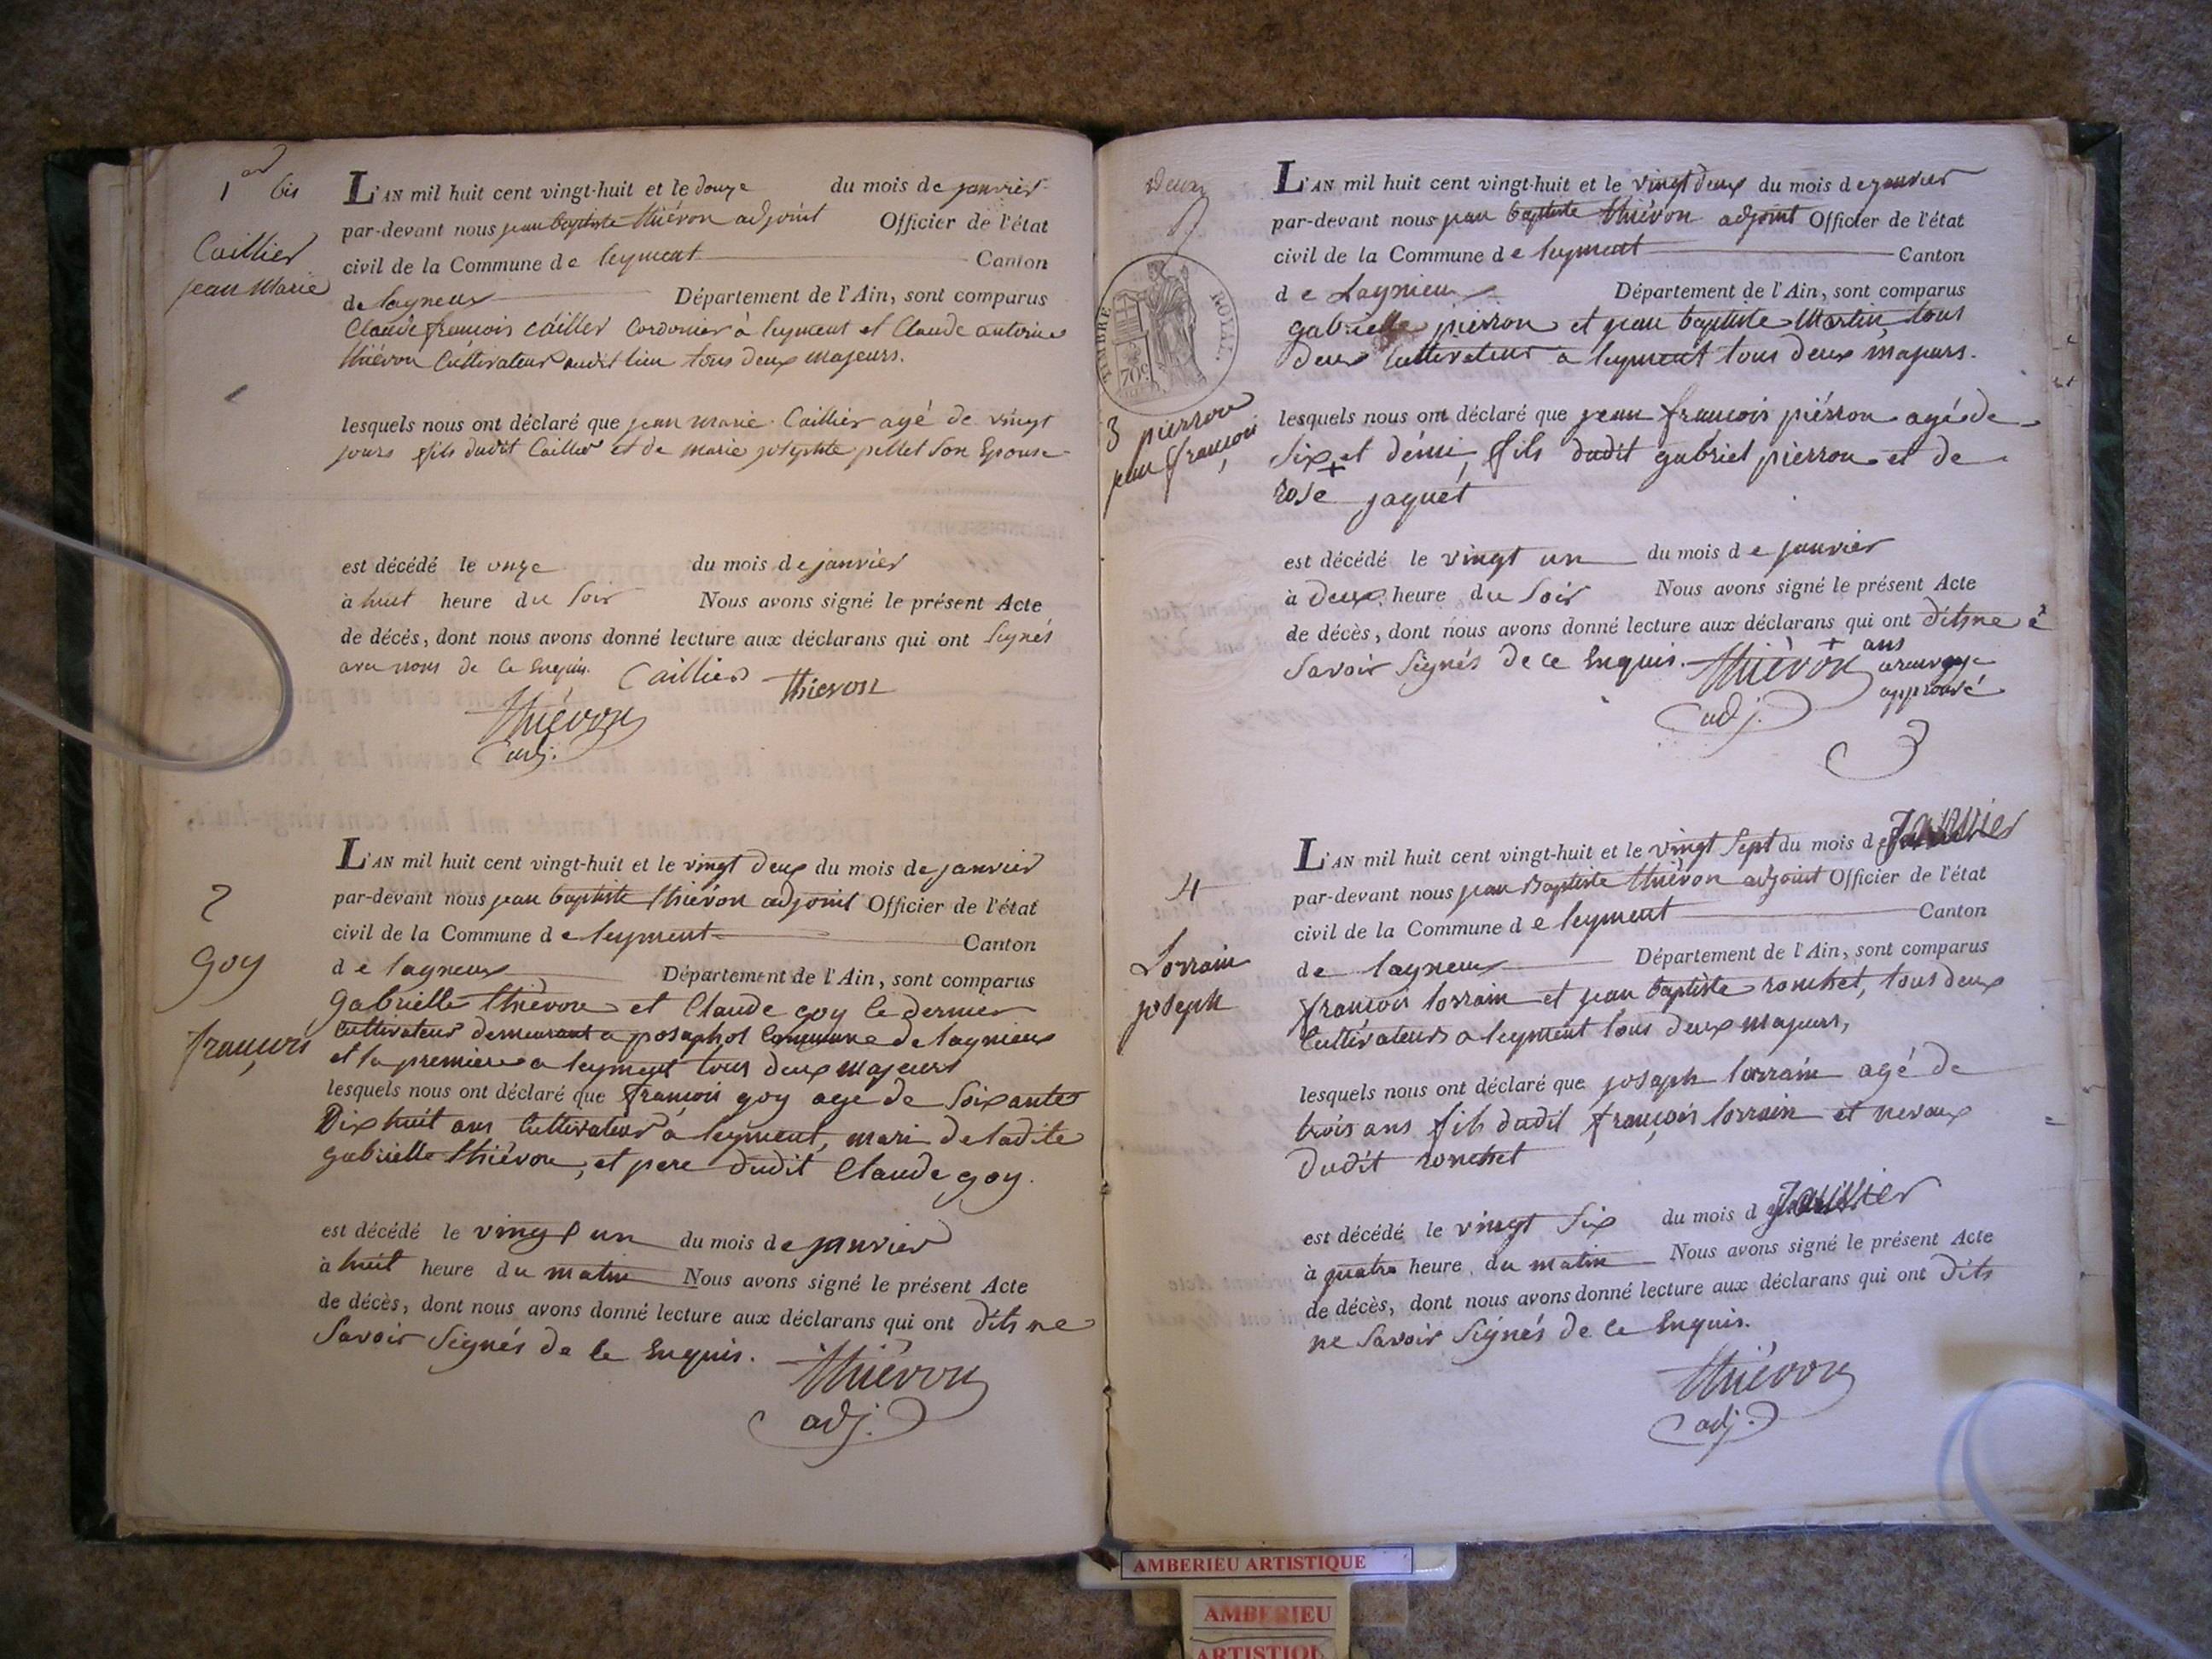 1 bis
Caillier
jean Marie
L'AN mil huit cent vingt-huit et le douze du mois de janvier
par-devant nous jean baptiste thiévon adjoint Officier de l'état
civil de la Commune de leyment Canton
de lagneux Département de l'Ain, sont comparus
Claude françois cailler Cordonier à leyment et Claude antoine
thiévon Cultivateur audit lieu tous deux majeurs.
lesquels nous ont déclaré que jean marie Caillier agé de vingt
jours fils dudit Caillier et de marie pellet son Epouse
est décédé le onze du mois de janvier
à huit heure du soir Nous avons signé le présent Acte
de décés, dont nous avons donné lecture aux déclarans qui ont signés
avec nous de ce Enquis. Caillier thievon
thiévon
adj.
2
goy
françois
L'AN mil huit cent vingt-huit et le vingt deux du mois de janvier
par-devant nous jean baptiste thiévon adjoint Officier de l'état
civil de la Commune de leyment Canton
de lagneux Département de l'Ain, sont comparus
gabrielle thiévon et Claude goy le dernier
Cultivateur demeurant a posaphol Commune de lagnieux
et la premiere a leyment tous deux majeurs
lesquels nous ont déclaré que françois goy agé de soixante
Dix huit ans Cultivateur à leyment, mari de ladite
gabrielle thiévon, et pere dudit Claude goy.
est décédé le vingt un du mois de janvier
à huit heure du matin Nous avons signé le présent Acte
de décès, dont nous avons donné lecture aux déclarans qui ont dits ne
savoir signés de ce Enquis.
thiévon
adj.
Deux
TIMBRE ROYAL.
70c
3 pierron
jean françois
L'AN mil huit cent vingt-huit et le vingt deux du mois de janvier
par-devant nous jean baptiste thiévon adjoint Officier de l'état
civil de la Commune de leyment Canton
de Lagnieux Département de l'Ain, sont comparus
gabrielle pierron et jean baptiste Martin, tous
deux Cultivateurs a leyment tous deux majeurs.
lesquels nous ont déclaré que jean françois piérron agé de
six + et démi, fils dudit gabriel pierron et de
rose jaquet
est décédé le vingt un du mois de janvier
à deux heure du soir Nous avons signé le présent Acte
de décès, dont nous avons donné lecture aux déclarans qui ont dits ne
savoir signés de ce Enquis. thiévon + ans
approuvé
adj.
4
Lorrain
joseph
L'AN mil huit cent vingt-huit et le vingt sept du mois de Janvier
par-devant nous jean Baptiste thiévon adjoint Officier de l'état
civil de la Commune de leyment Canton
de lagneux Département de l'Ain, sont comparus
françois lorrain et jean baptiste ronchet, tous deux
Cultivateurs a leyment tous deux majeurs,
lesquels nous ont déclaré que josaph lorrain agé de
trois ans fils dudit françois lorrain et nevaux
dudit ronchet
est décédé le vingt six du mois d Janvier
à quatre heure du matin Nous avons signé le présent Acte
de décès, dont nous avons donné lecture aux déclarans qui ont dits
ne savoir signés de ce Enquis.
thiévon
adj.
AMBERIEU ARTISTIQUE
AMBERIEU